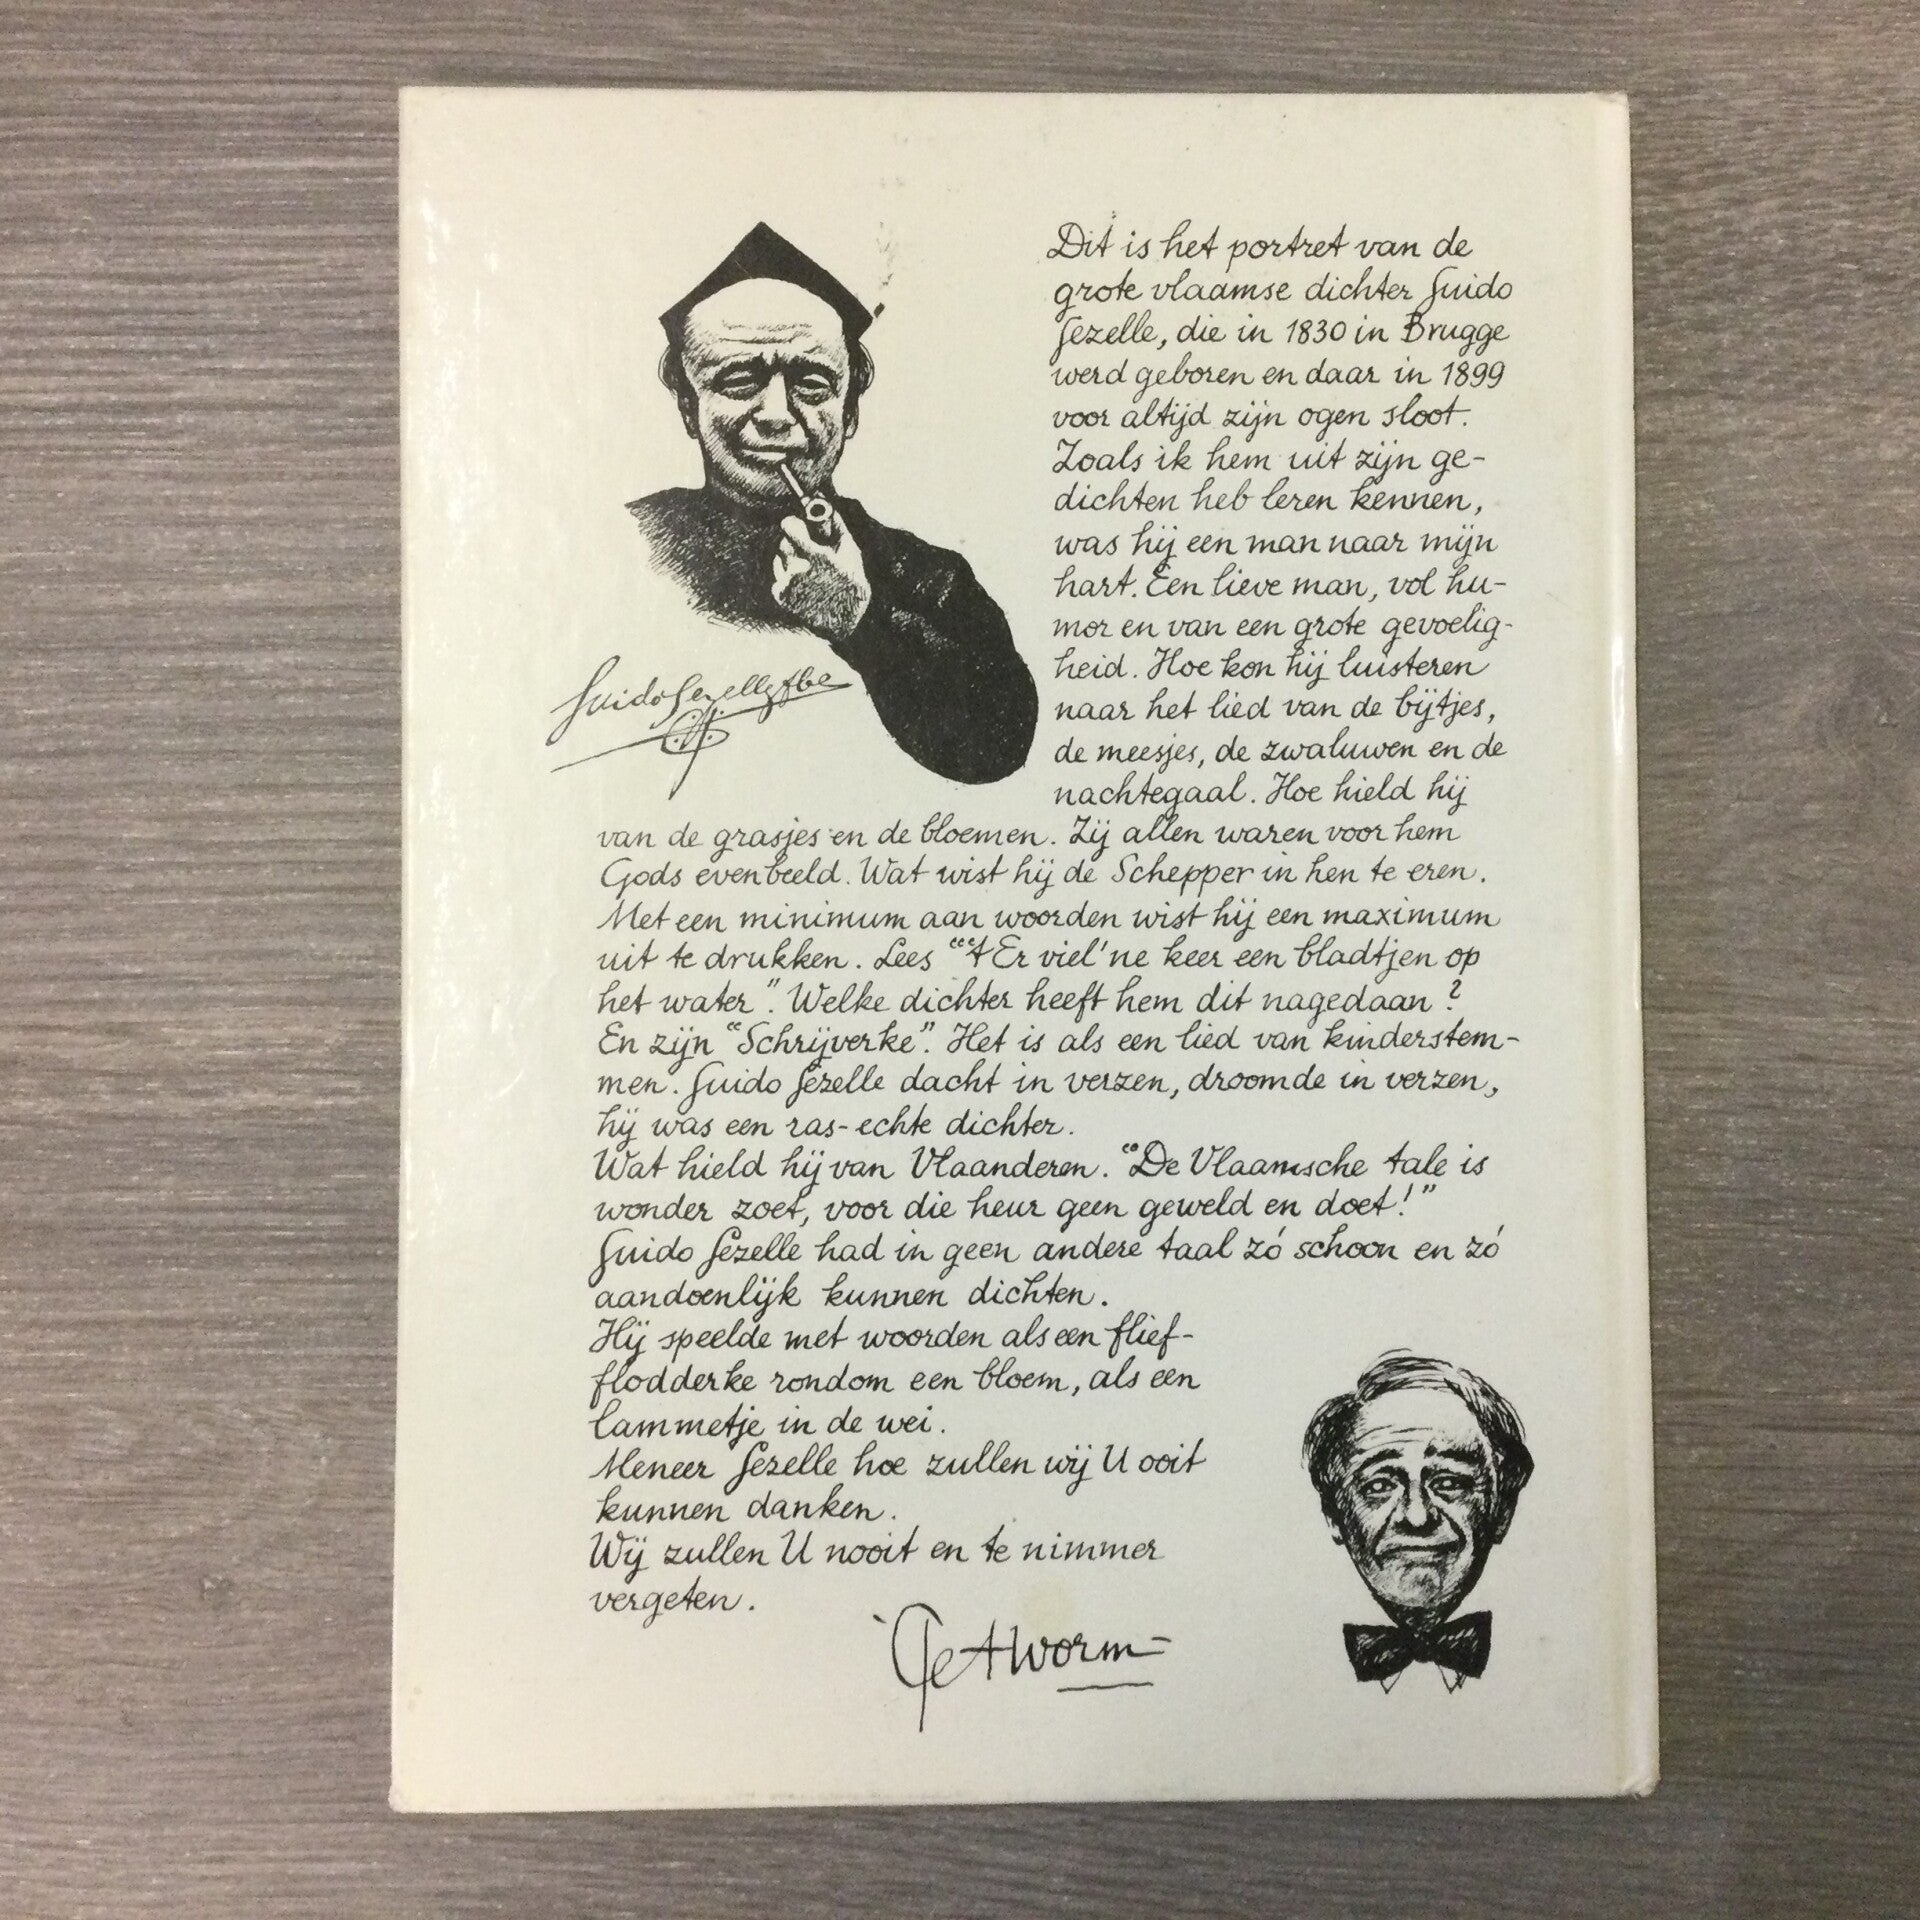 Dit is het portret van de
grote vlaamse dichter Guido
Gezelle, die in 1830 in Brugge
werd geboren en daar in 1899
voor altijd zijn ogen sloot.
Zoals ik hem uit zijn ge-
dichten heb leren kennen,
was hij een man naar mijn
hart. Een lieve man, vol hu-
mor en van een grote gevoelig-
heid. Hoe kon hij luisteren
naar het lied van de bijtjes,
de meesjes, de zwaluwen en de
nachtegaal. Hoe hield hij
Guido Gezelle
van de grasjes en de bloemen. Zij allen waren voor hem
Gods evenbeeld. Wat wist hij de Schepper in hen te eren.
Met een minimum aan woorden wist hij een maximum
uit te drukken. Lees "'t Er viel 'ne keer een bladtjen op
het water". Welke dichter heeft hem dit nagedaan?
En zijn "Schrijverke". Het is als een lied van kinderstem-
men. Guido Gezelle dacht in verzen, droomde in verzen,
hij was een ras-echte dichter.
Wat hield hij van Vlaanderen. "De Vlaamsche tale is
wonder zoet, voor die heur geen geweld en doet!"
Guido Gezelle had in geen andere taal zó schoon en zó
aandoenlijk kunnen dichten.
Hij speelde met woorden als een flief-
flodderke rondom een bloem, als een
lammetje in de wei.
Meneer Gezelle hoe zullen wij U ooit
kunnen danken.
Wij zullen U nooit en te nimmer
vergeten.